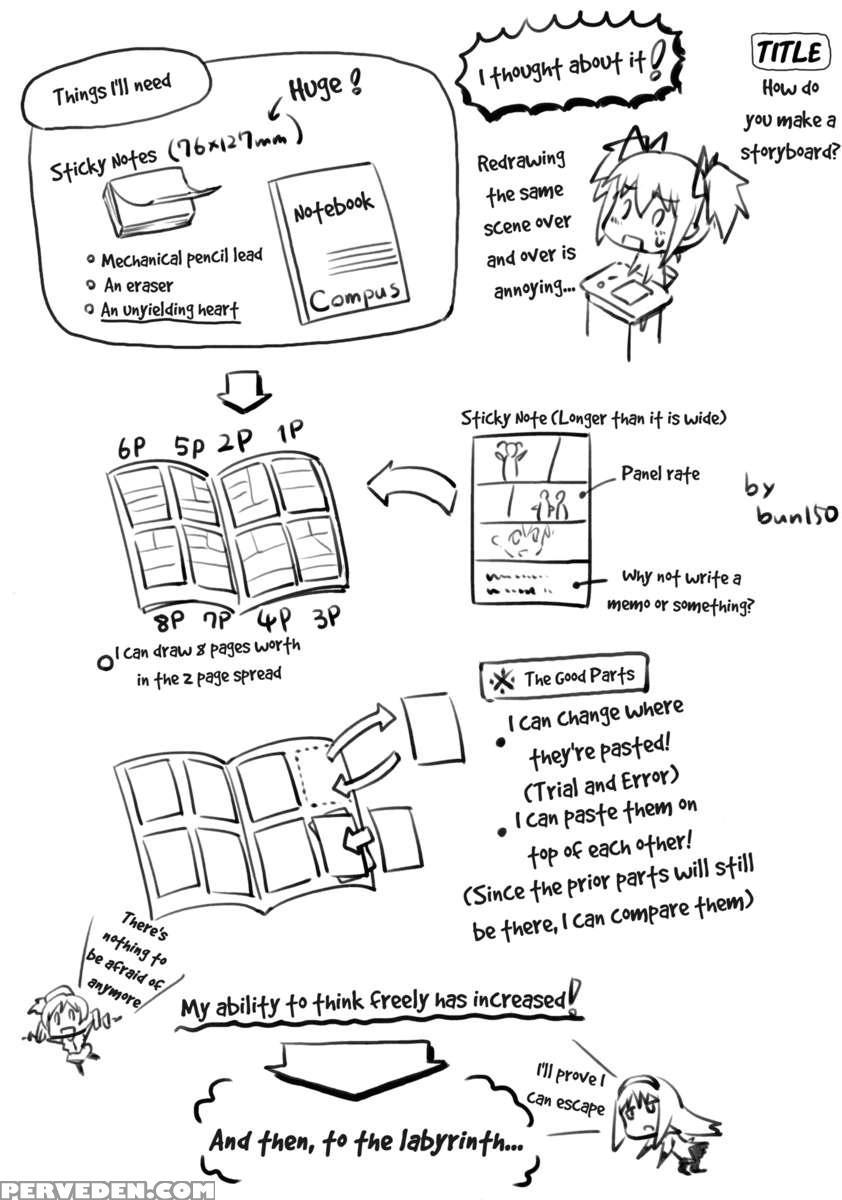 TITLE
How do
you make a
storyboard?
I thought about it!
Redrawing
the same
scene over
and over is
annoying...
Things I'll need
Huge!
Sticky Notes (76×127mm)
Notebook
Compus
Mechanical pencil lead
An eraser
An unyielding heart
6P 5P 2P 1P
8P 7P 4P 3P
I can draw 8 pages worth
in the 2 page spread
Sticky Note (Longer than it is wide)
Panel rate
Why not write a
memo or something?
by
bun150
※ The Good Parts
• I can change where
they're pasted!
(Trial and Error)
• I can paste them on
top of each other!
(Since the prior parts will still
be there, I can compare them)
There's
nothing to
be afraid of
anymore
My ability to think freely has increased!
I'll prove I
can escape
And then, to the labyrinth...
PERVEDEN.COM